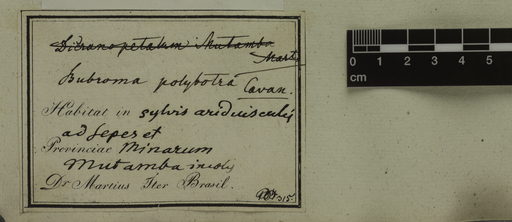 Mutamba
Martii
Bubroma polybotra Cavan.
Habitat in sylvis ariduisculis
ad sepes et
Provinciae Minarum
Mutamba incolis
Dr. Martius Iter Brasil.
0 1 2 3 4 5
cm